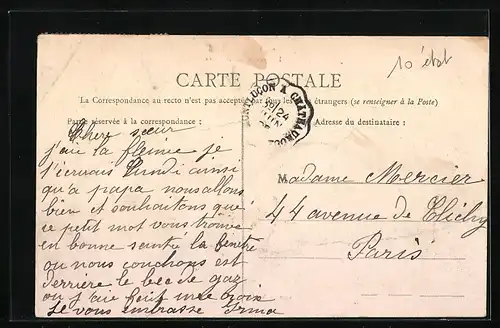 10 état
CARTE POSTALE
La Correspondance au recto n'est pas acceptée par tous les pays étrangers (se renseigner à la Poste)
Partie réservée à la correspondance :
Adresse du destinataire :
MONTLUÇON A CHATEAUROUX
24
JUIN
Chere sœur
j'ai la flemme je
t'ecrirais lundi ainsi
qu'a papa nous allons
bien et souhaitons que
ce petit mot vous trouve
en bonne sante la fenetre
ou nous couchons est
derriere le bec de gaz
ou j'ai fait une croix
Je vous embrasse Irma
Madame Mercier
44 avenue de Clichy
Paris